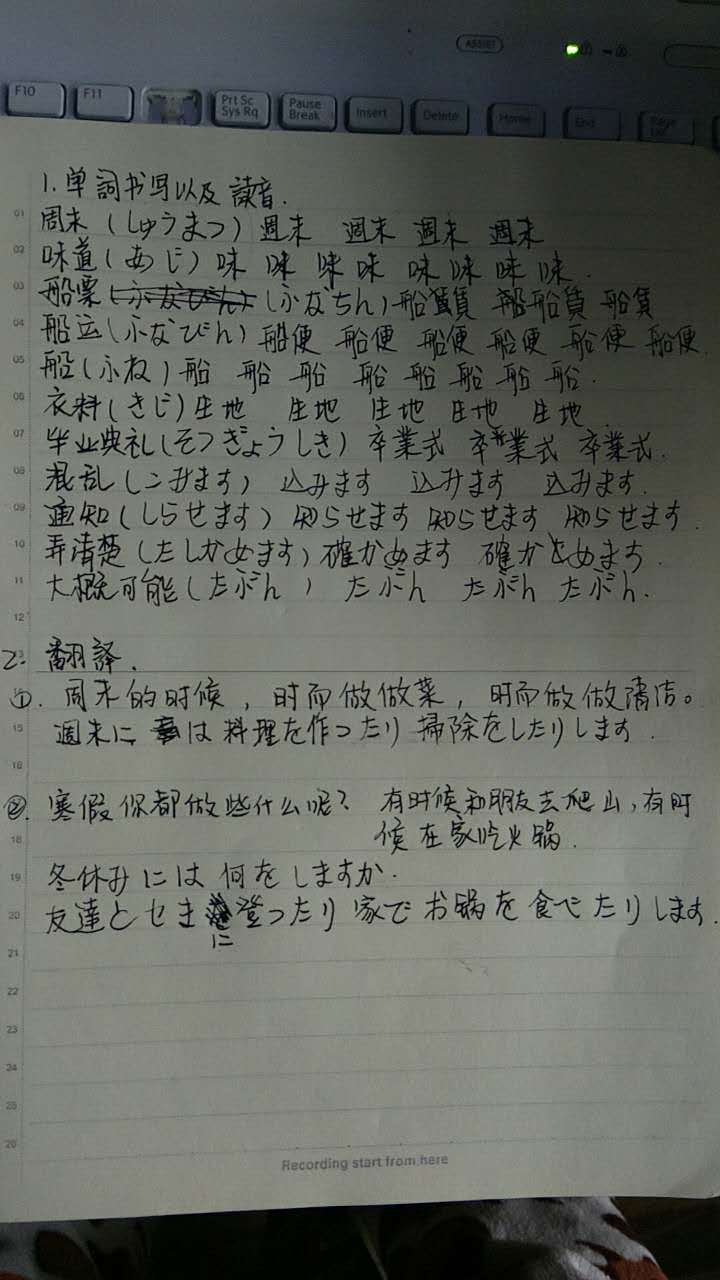 ASSIST
F10 F11 Prt Sc Pause Insert Delete Home End Page
Sys Rq Break
1. 单詞书写以及 读音.
01 周末 (しゅうまつ) 週末 週末 週末 週末
02 味道 (あじ) 味 味 味 味 味 味 味 味.
03 船票 (ふなちん) 船賃 船賃 船賃
04 船运 (ふなびん) 船便 船便 船便 船便 船便 船便
05 船 (ふね) 船 船 船 船 船 船 船 船.
06 衣料 (きじ) 生地 生地 生地 生地 生地
07 毕业典礼 (そつぎょうしき) 卒業式 卒業式 卒業式.
08 混乱 (こみます) 込みます 込みます 込みます.
09 通知 (しらせます) 知らせます 知らせます 知らせます.
10 弄清楚 (たしかめます) 確かめます 確かめます.
11 大概可能 (たぶん) たぶん たぶん たぶん.
12
2. 翻譯.
①. 周末的时候, 时而做做菜, 时而做做清洁。
15 週末には料理を作ったり掃除をしたりします.
16
②. 寒假你都做些什么呢? 有时候和朋友去爬山, 有时
18 候在家吃火锅.
19 冬休みには何をしますか.
20 友達と に登ったり家でお鍋を食べたりします.
21
22
23
24
25
26
Recording start from here